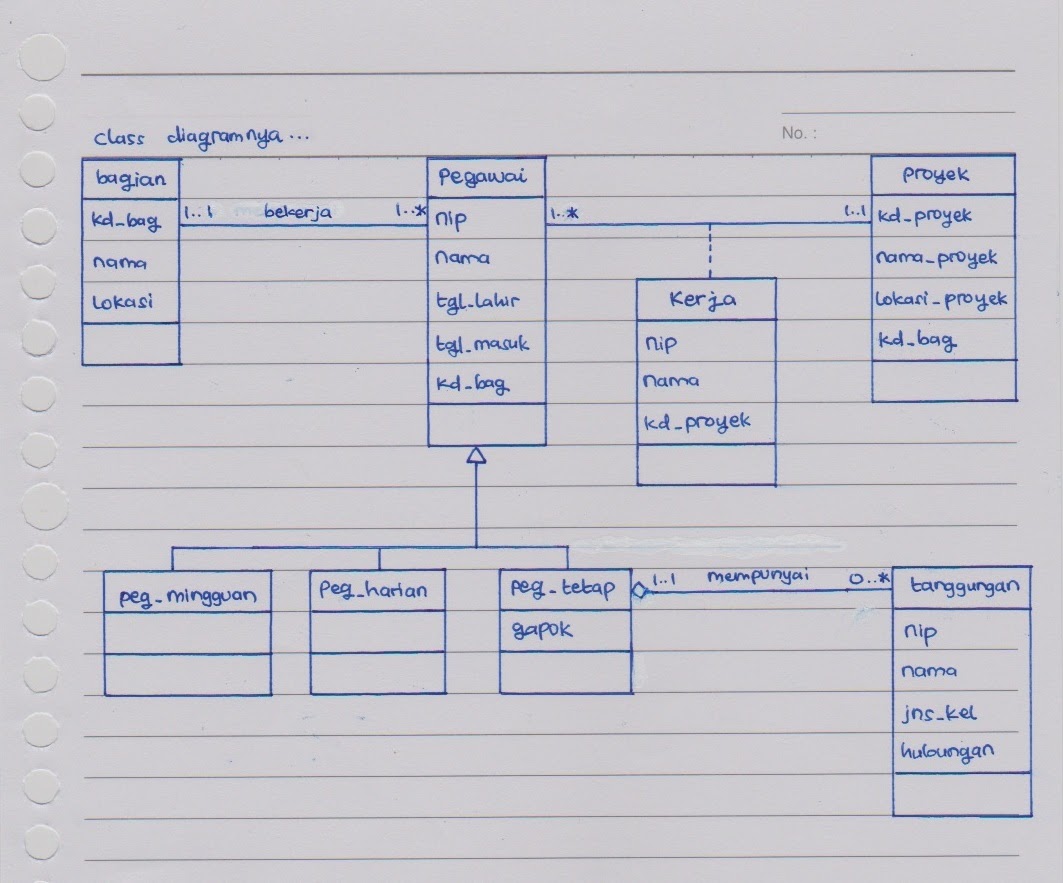 No. :
class diagramnya...
bagian
kd_bag
nama
lokasi
1..1 bekerja 1..*
Pegawai
nip
nama
tgl_lahir
tgl_masuk
kd_bag
1..* 1..1
Kerja
nip
nama
kd_proyek
proyek
kd_proyek
nama_proyek
lokasi_proyek
kd_bag
peg_mingguan
peg_harian
peg_tetap
gapok
1..1 mempunyai 0..*
tanggungan
nip
nama
jns_kel
hubungan